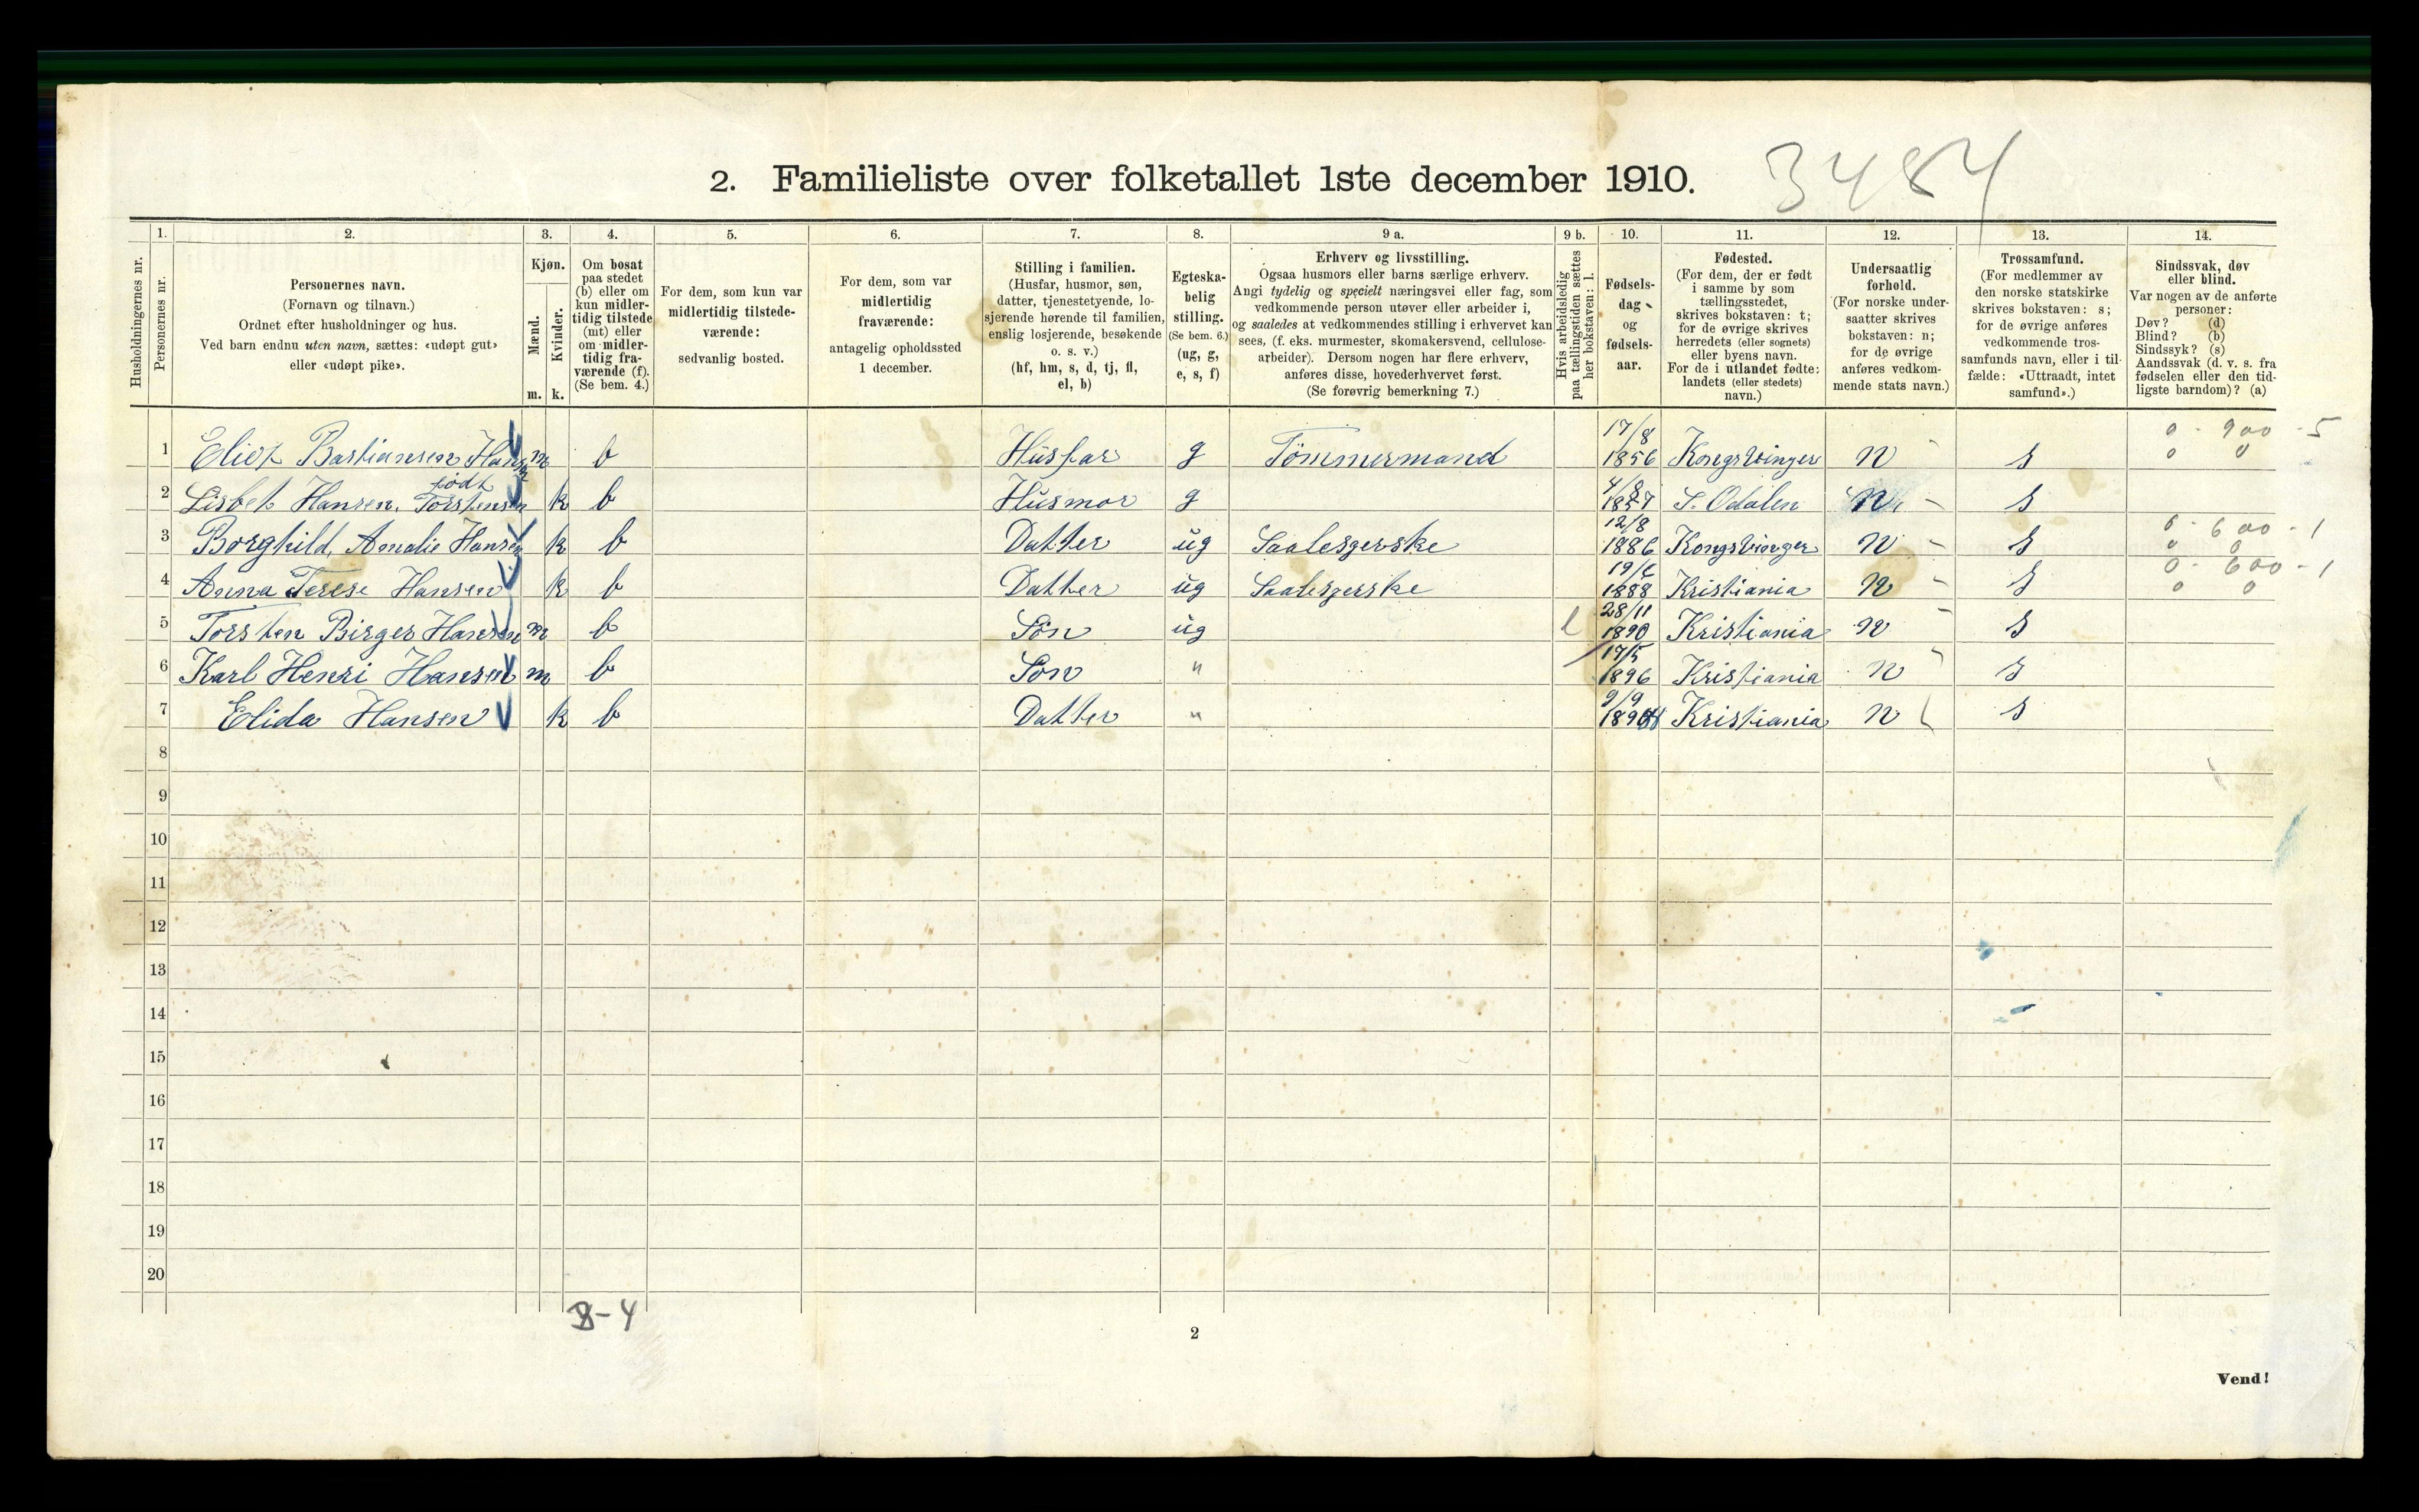 2. Familieliste over folketallet 1ste december 1910.
3484
1. 2. 3. 4. 5. 6. 7. 8. 9 a. 9 b. 10. 11. 12. 13. 14.
Husholdningernes nr.
Personernes nr.
Personernes navn.
(Fornavn og tilnavn.)
Ordnet efter husholdninger og hus.
Ved barn endnu uten navn, sættes: «udøpt gut»
eller «udøpt pike».
Kjøn.
Mænd.
Kvinder.
m. k.
Om bosat
paa stedet
(b) eller om
kun midler-
tidig tilstede
(mt) eller
om midler-
tidig fra-
værende (f).
(Se bem. 4.)
For dem, som kun var
midlertidig tilstede-
værende:
sedvanlig bosted.
For dem, som var
midlertidig
fraværende:
antagelig opholdssted
1 december.
Stilling i familien.
(Husfar, husmor, søn,
datter, tjenestetyende, lo-
sjerende hørende til familien,
enslig losjerende, besøkende
o. s. v.)
(hf, hm, s, d, tj, fl,
el, b)
Egteska-
belig
stilling.
(Se bem. 6.)
(ug, g,
e, s, f)
Erhverv og livsstilling.
Ogsaa husmors eller barns særlige erhverv.
Angi tydelig og specielt næringsvei eller fag, som
vedkommende person utøver eller arbeider i,
og saaledes at vedkommendes stilling i erhvervet kan
sees, (f. eks. murmester, skomakersvend, cellulose-
arbeider). Dersom nogen har flere erhverv,
anføres disse, hovederhvervet først.
(Se forøvrig bemerkning 7.)
Hvis arbeidsledig
paa tællingstiden sættes
her bokstaven: l.
Fødsels-
dag
og
fødsels-
aar.
Fødested.
(For dem, der er født
i samme by som
tællingsstedet,
skrives bokstaven: t;
for de øvrige skrives
herredets (eller sognets)
eller byens navn.
For de i utlandet fødte:
landets (eller stedets)
navn.)
Undersaatlig
forhold.
(For norske under-
saatter skrives
bokstaven: n;
for de øvrige
anføres vedkom-
mende stats navn.)
Trossamfund.
(For medlemmer av
den norske statskirke
skrives bokstaven: s;
for de øvrige anføres
vedkommende tros-
samfunds navn, eller i til-
fælde: «Uttraadt, intet
samfund».)
Sindssvak, døv
eller blind.
Var nogen av de anførte
personer:
Døv? (d)
Blind? (b)
Sindssyk? (s)
Aandssvak (d. v. s. fra
fødselen eller den tid-
ligste barndom)? (a)
1 Bastiansen Hansen m b Husfar g Tömmermand 17/8 1856 Kongsvinger n s 0 - 900 - 5
0 0
2 Lisbet Hansen. født Torstensen k b Husmor g 1857 S. Odalen n s
3 Borghild, Amalie Hansen k b Datter ug 12/8 1886 Kongsvinger n s 0 - 600 - 1
0 0
4 Anna Terese Hansen k b Datter ug 1888 Kristiania n s 0 - 600 - 1
0 0
5 Torsten Birger Hansen m b Sön ug l 28/11 1890 Kristiania n s
6 Karl Henri Hansen m b Sön " 17/5 1896 Kristiania n s
7 Elida Hansen k b Datter " 9/9 Kristiania n s
8
9
10
11
12
13
14
15
16
17
18
19
20
B-4
2
Vend!